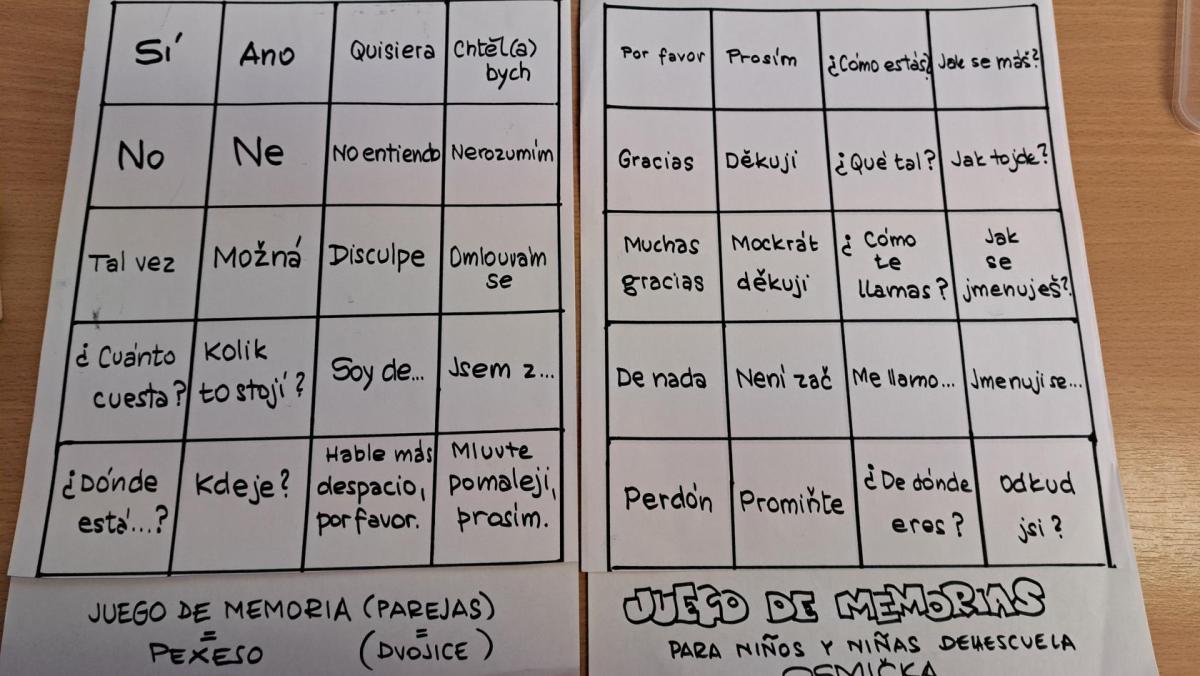 SÍ
Ano
Quisiera
Chtěl(a)
bych
No
Ne
No entiendo
Nerozumím
Tal vez
Možná
Disculpe
Omlouvám
se
¿Cuánto
cuesta?
Kolik
to stojí?
Soy de...
Jsem z...
¿Dónde
está...?
Kde je?
Hable más
despacio,
por favor.
Mluvte
pomaleji,
prosím.
JUEGO DE MEMORIA (PAREJAS)
= =
PEXESO (DVOJICE)
Por favor
Prosím
¿Cómo estás?
Jak se máš?
Gracias
Děkuji
¿Qué tal?
Jak to jde?
Muchas
gracias
Mockrát
děkuji
¿Cómo
te
llamas?
Jak
se
jmenuješ?
De nada
Není zač
Me llamo...
Jmenuji se...
Perdón
Promiňte
¿De dónde
eres?
Odkud
jsi?
JUEGO DE MEMORIAS
PARA NIÑOS Y NIÑAS DE ESCUELA
OSMIČKA